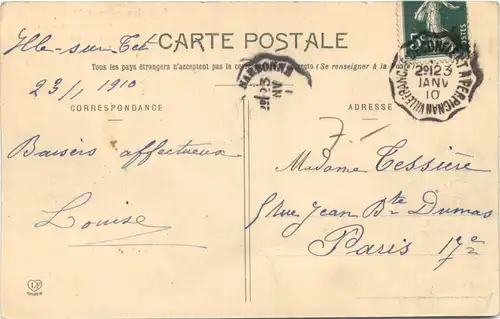 Ille-sur-Tet
23/1 1910
CARTE POSTALE
Tous les pays étrangers n'acceptent pas la (Se renseigner à la
CORRESPONDANCE
ADRESSE
Baisers affectueux
Louise
Madame Tessière
5 Rue Jean Bte Dumas
Paris 17e
NARBONNE
VILLEFRANCHE
A PERPIGNAN
2923
JANV
10
5
LF